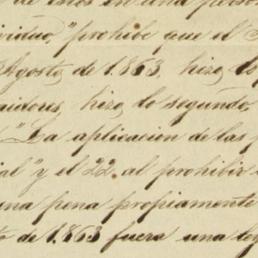 de estos en una perso
ividuo," prohibe que el S
Agosto de 1863, hizo lo
aidores, hizo lo segundo
." La aplicacion de las p
ial" y el 22 al prohibir
una pena propiamente
to de 1863 fuera una ley